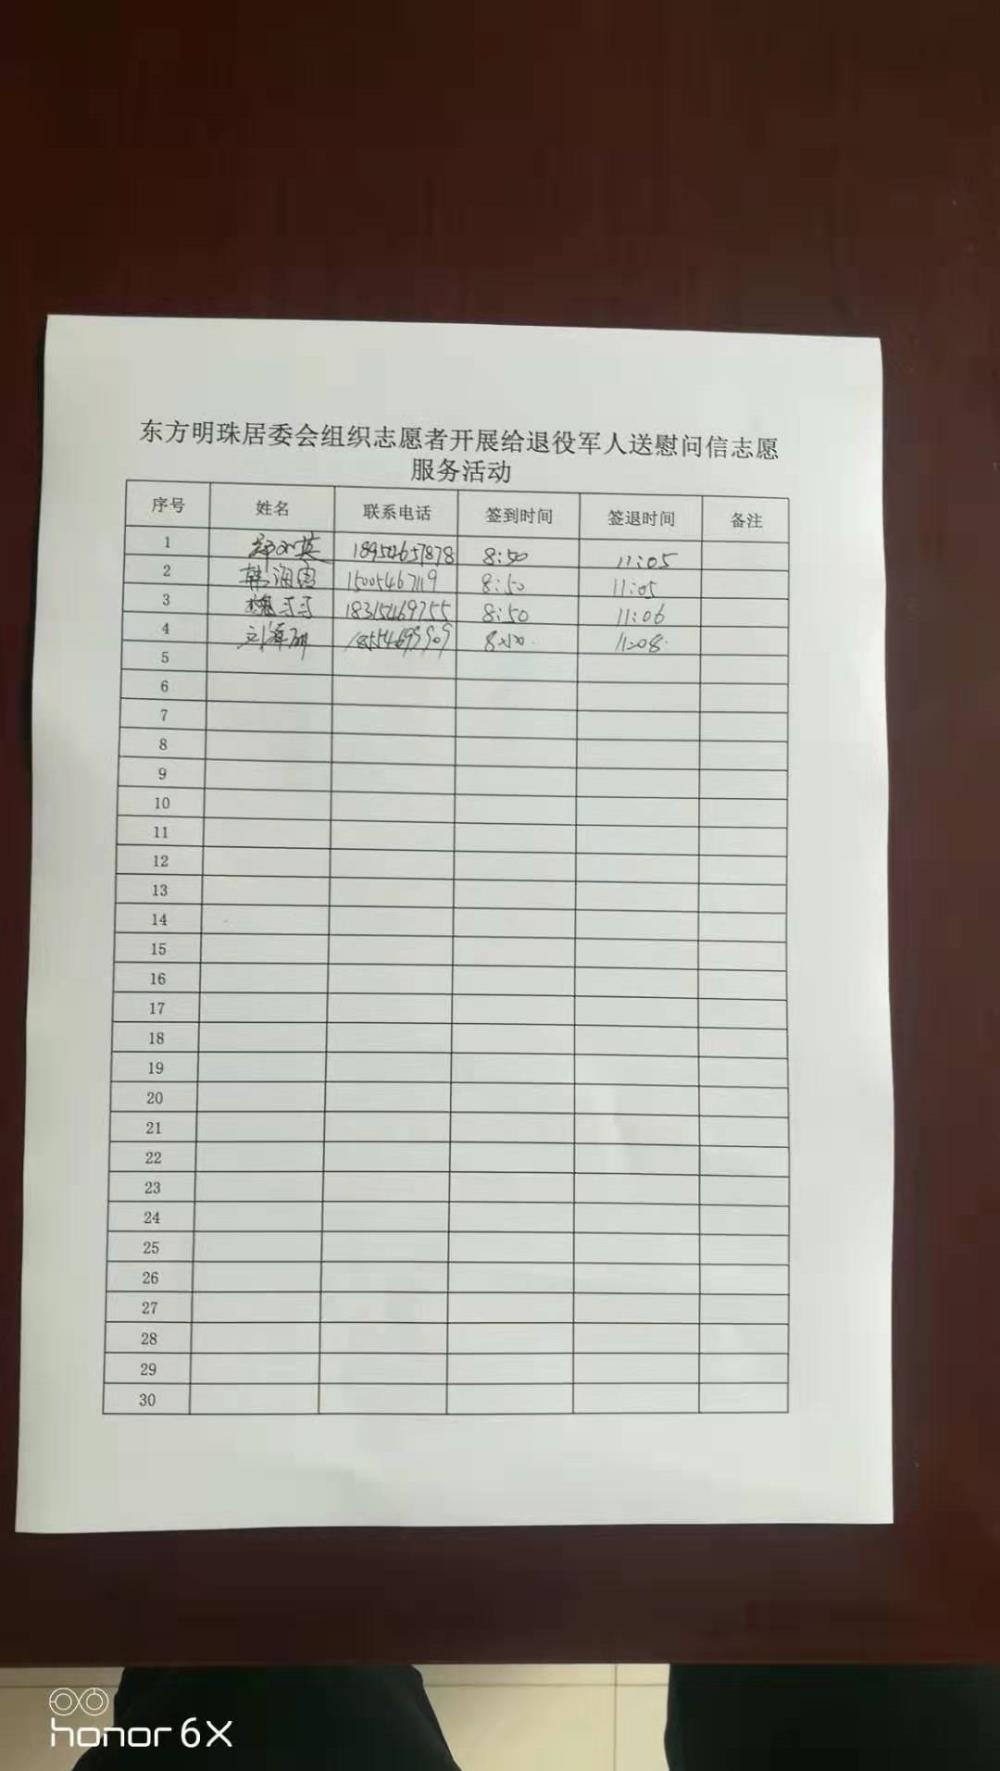 东方明珠居委会组织志愿者开展给退役军人送慰问信志愿
服务活动
序号 姓名 联系电话 签到时间 签退时间 备注
1 18954657878 8:50 11:05
2 韩海国 15005467119 8:50 11:05
3 魏子子 18315469755 8:50 11:06
4 8:50 11:08
5
6
7
8
9
10
11
12
13
14
15
16
17
18
19
20
21
22
23
24
25
26
27
28
29
30
honor 6X